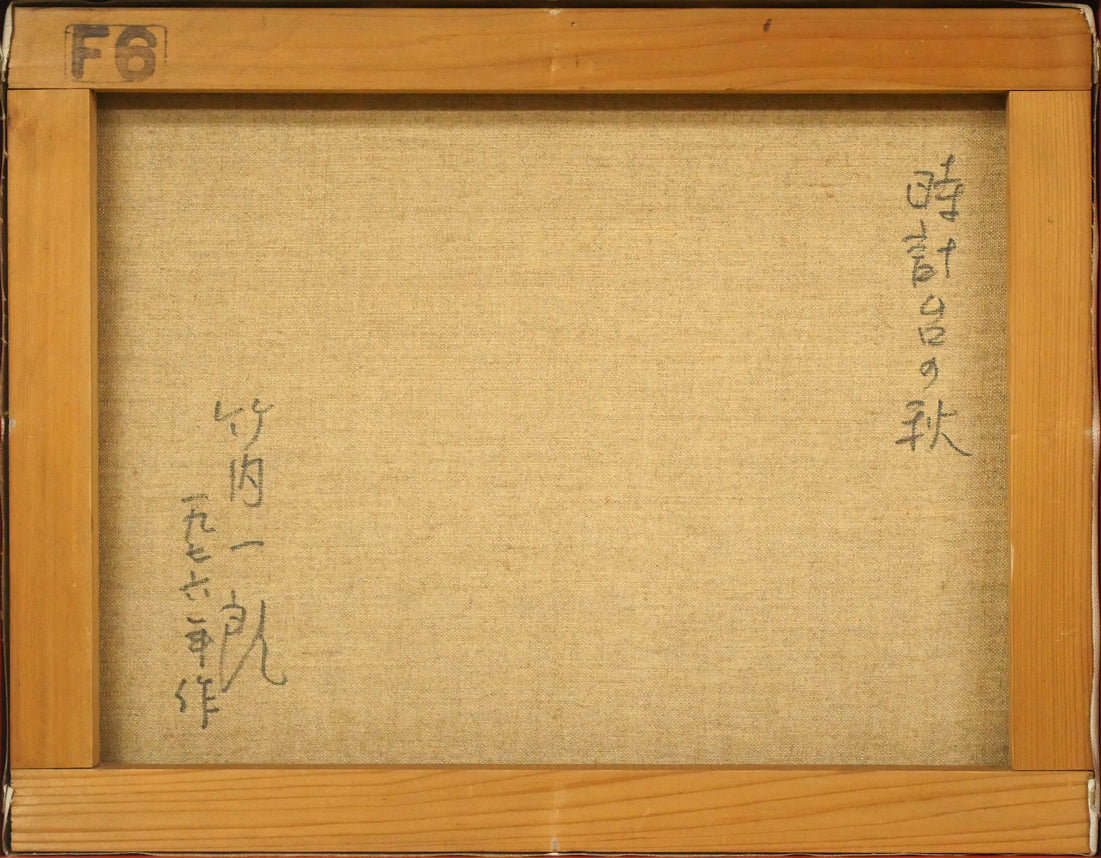 F6
時計台の秋
竹内一郎
一九七六年作